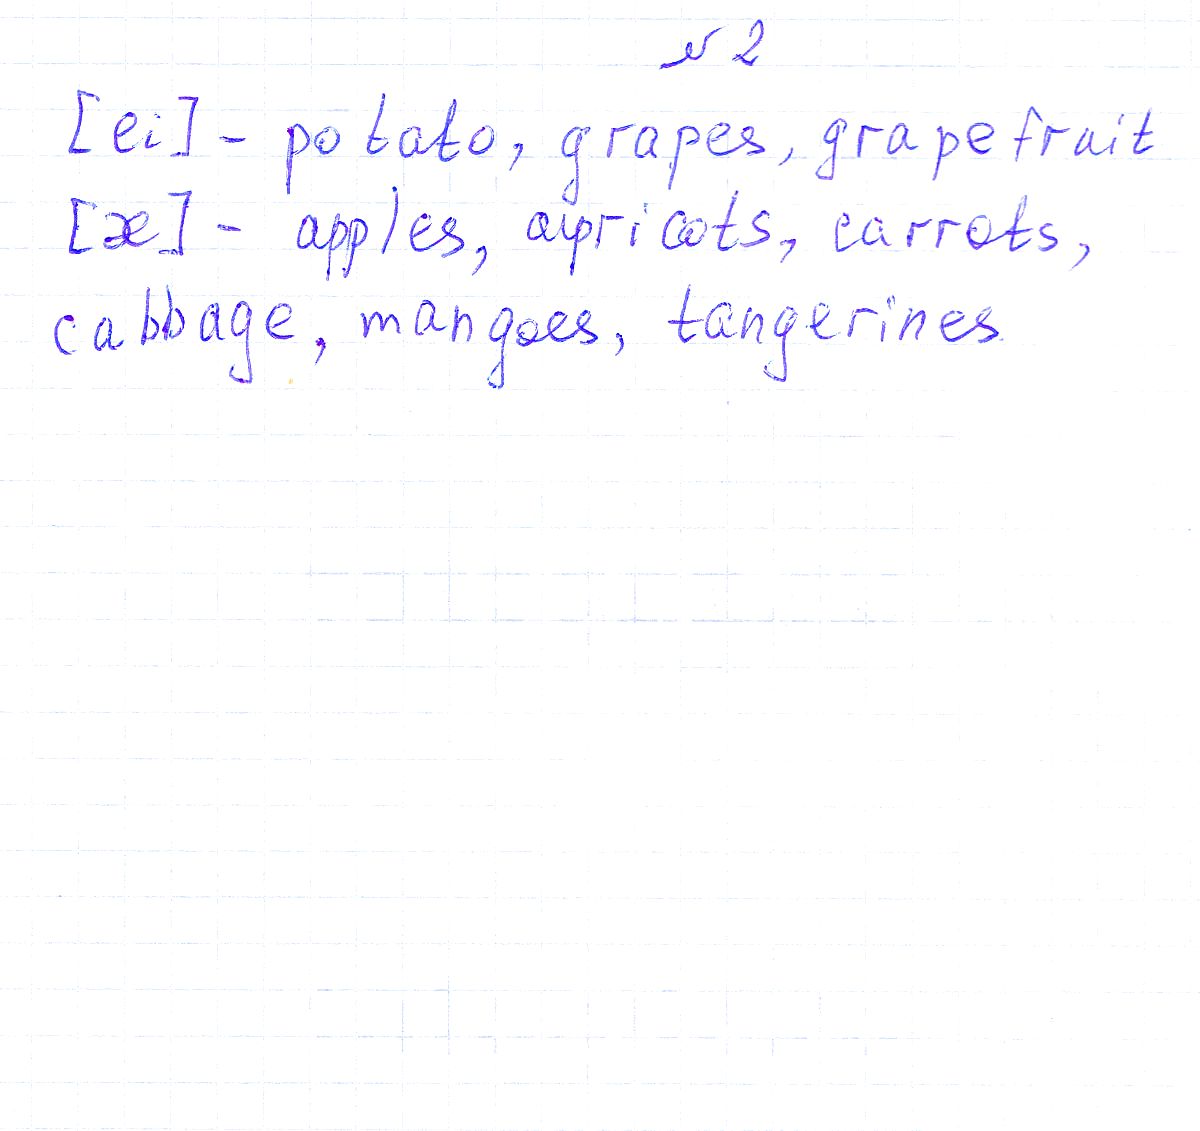 № 2
[ei] - potato, grapes, grapefruit
[æ] - apples, apricots, carrots,
cabbage, mangoes, tangerines